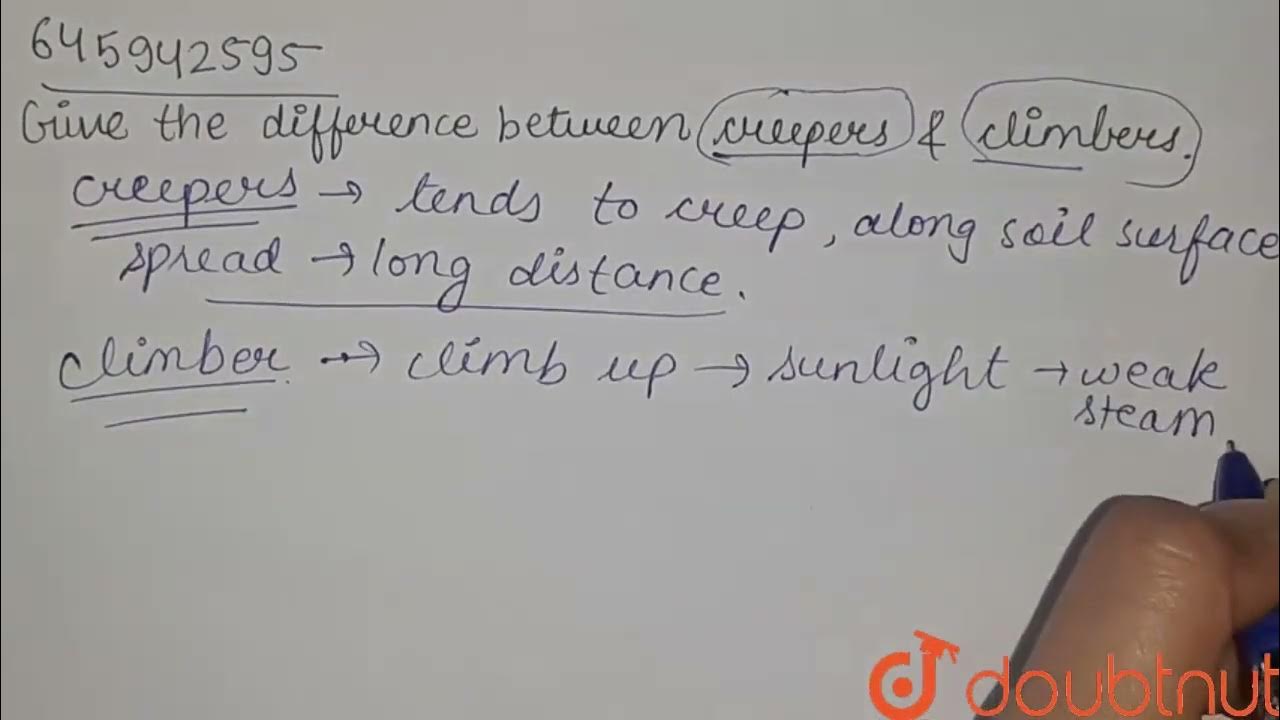 645942595
Give the difference between creepers & climbers.
creepers → tends to creep, along soil surface
spread → long distance.
climber → climb up → sunlight → weak
steam
doubtnut